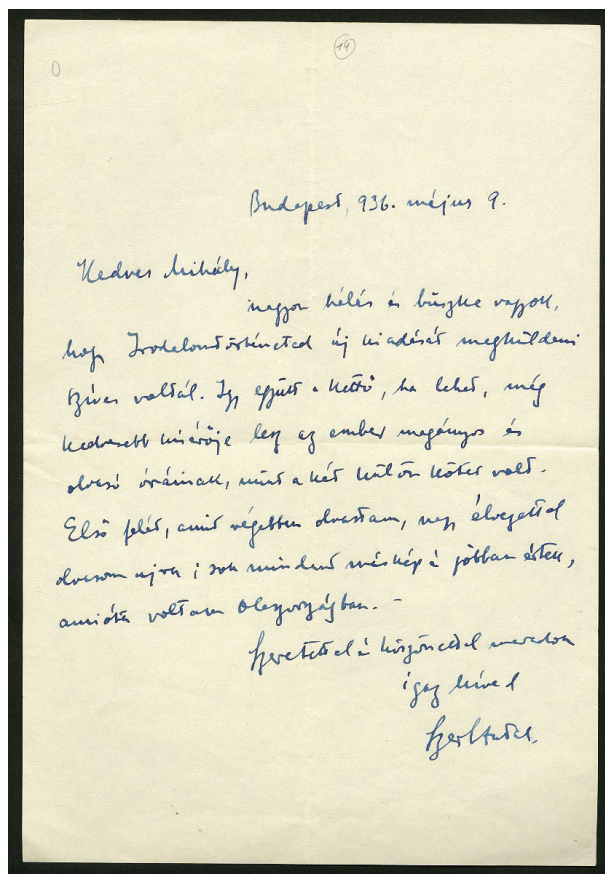 14
Budapest, 936. május 9.
Kedves Mihály,
nagyon hálás és büszke vagyok,
hogy Irodalomtörténeted új kiadását megküldeni
szíves voltál. Igy együtt a kettő, ha lehet, még
kedvesebb kisérője lesz az ember magányos és
olvasó óráinak, mint a két külön kötet volt.
Első felét, amit régebben olvastam, nagy élvezettel
olvasom ujra; sok mindent máskép és jobban értek,
amióta voltam Olaszországban. –
Szeretettel és köszönettel maradok
igaz híved
Szerb Antal.